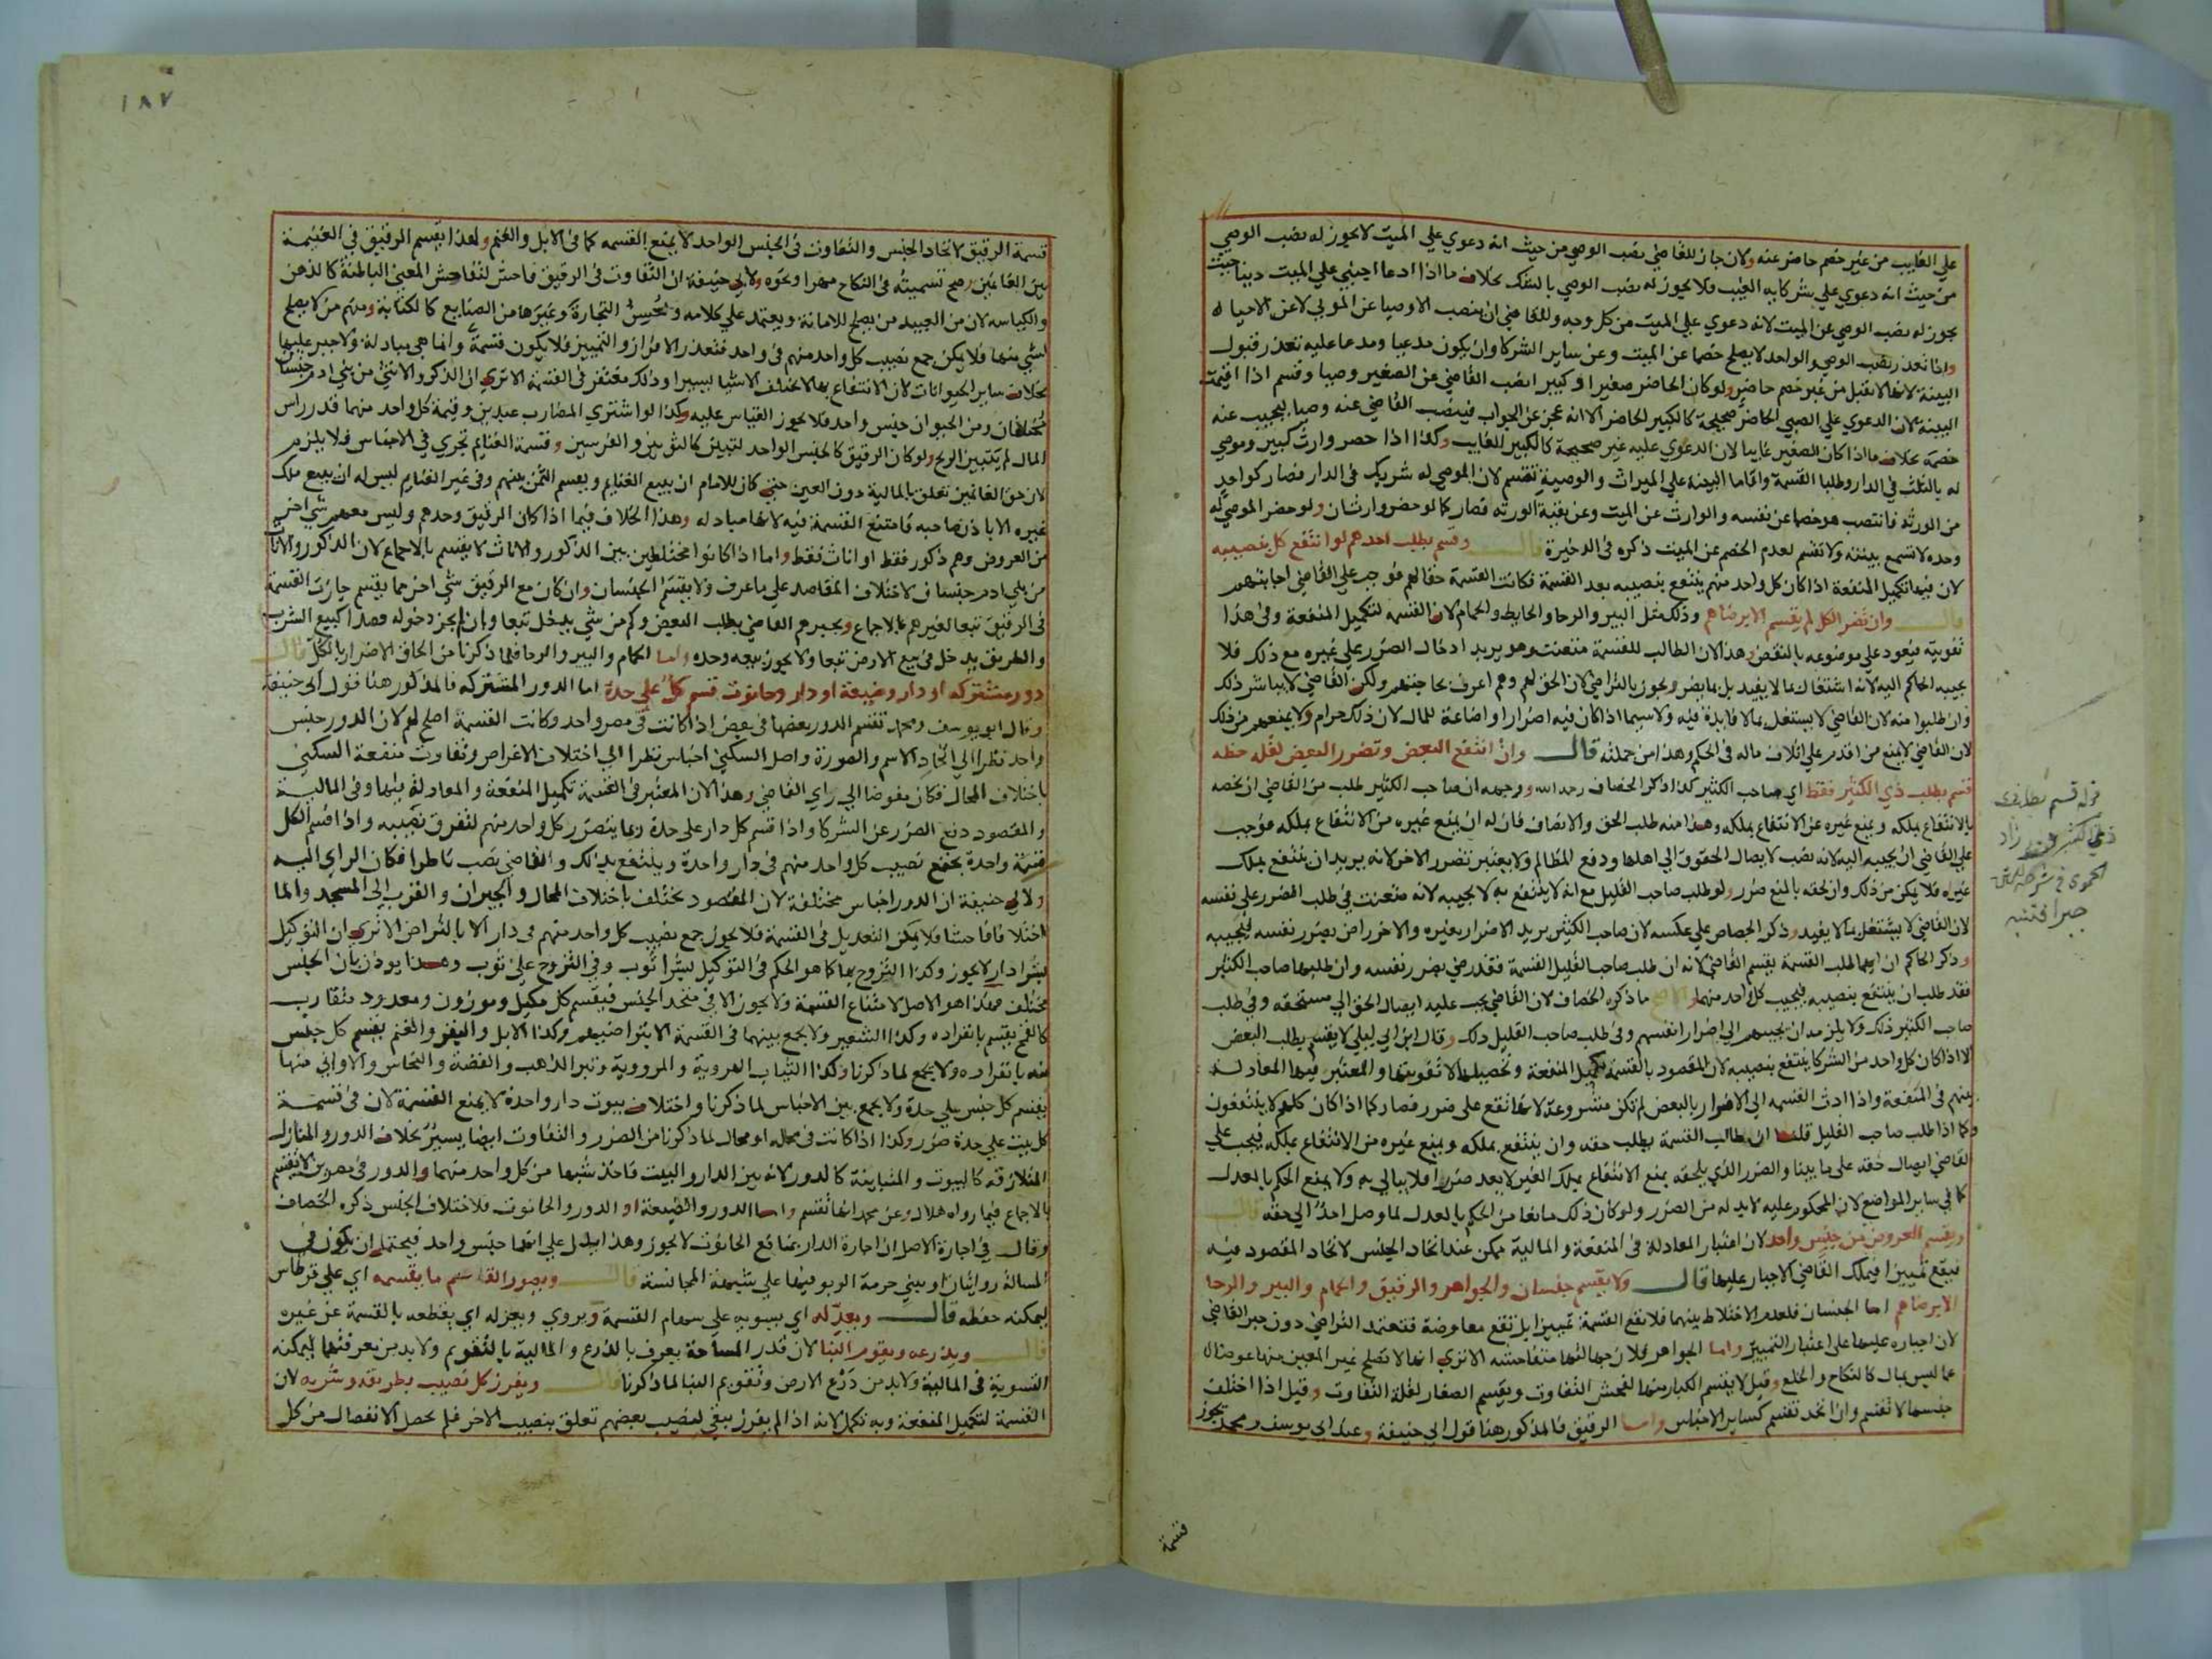 علي الغايب من غير خصم حاضر عنه ولان جاز للقاضي نصب الوصي من حيث انه دعوي علي الميت لا يجوز له نصب الوصي
من حيث انه دعوي علي شركايه الغيب فلا يجوز له نصب الوصي بالشك بخلاف ما اذا ادعا اجنبي علي الميت دينا حيث
يجوز له نصب الوصي عن الميت لانه دعوي علي الميت من كل وجه وللقاضي ان ينصب الاوصيا عن الموتي لا عن الاحيا
واذا تعذر نصب الوصي والواحد لا يصلح خصما عن الميت وعن ساير الشركا وان يكون مدعيا ومدعا عليه تعذر قبول
البينة لانها لا تقبل من غير خصم حاضر ولو كان الحاضر صغيرا وكبير انصب القاضي عن الصغير وصيا وقسم اذا اقيمت
البينة لان الدعوي علي الصبي الحاضر صحيحة كالكبير الحاضر الا انه عجز عن الجواب فينصب القاضي عنه وصيا ليجيب عنه
خصمه بخلاف ما اذا كان الصغير غايبا لان الدعوي عليه غير صحيحة كالكبير الغايب وكذا اذا حضر وارث كبير وموصي
له بالثلث في الدار وطلبا القسمة واقاما البينة علي الميراث والوصية تقسم لان الموصي له شريك في الدار فصار كواحد
من الورثة فانتصب هو خصما عن نفسه والوارث عن الميت وعن بقية الورثة فصار كما لو حضر وارثان ولو حضر الموصي له
وحده لا تسمع بينته ولا تقسم لعدم الخصم عن الميت ذكره في الذخيرة قال وقسم بطلب احدهم لو انتفع كل بنصيبه
لان فيها تكميل المنفعة اذا كان كل واحد منهم ينتفع بنصيبه بعد القسمة فكانت القسمة حقا لهم فوجب علي القاضي اجابتهم
قال وان تضر الكل لم يقسم الا برضاهم وذلك مثل البير والرحا والحايط والحمام لان القسمة لتكميل المنفعة وفي هذا
تفويته فيعود علي موضوعه بالنقض وهذا لان الطالب للقسمة متعنت وهو يريد ادخال الضرر علي غيره مع ذلك فلا
يجيبه الحاكم اليه لانه اشتغال بما لا يفيد بل بما يضر ويجوز بالتراضي لان الحق لهم وهم اعرف بحاجتهم ولكن القاضي لا يباشر ذلك
وان طلبوا منه لان القاضي لا يشتغل بما لا فايدة فيه ولا سيما اذا كان فيه اضرار او اضاعة للمال لان ذلك حرام ولا يمنعهم من ذلك
لان القاضي لا يمنع من اقدم علي اتلاف ماله في الحكم وهذا من جملته قال وان انتفع البعض وتضرر البعض لقله حظه
قسم بطلب ذي الكثير فقط اي صاحب الكثير كذا ذكر الخصاف رحمه الله ووجهه ان صاحب الكثير طلب من القاضي ان يخصه
بالانتفاع بملكه ويمنع غيره عن الانتفاع بملكه وهذا منه طلب الحق والانصاف فان له ان يمنع غيره من الانتفاع بملكه فوجب
علي القاضي ان يجيبه اليه لانه نصب لايصال الحقوق الي اهلها ودفع المظالم ولا يعتبر تضرر الاخر لانه يريد ان ينتفع بملك
غيره فلا يمكن من ذلك وان لحقه بالمنع ضرر ولو طلب صاحب القليل مع انه لا ينتفع به لا يجيبه لانه متعنت في طلب الضرر علي نفسه
لان القاضي لا يشتغل بما لا يفيد وذكر الجصاص علي عكسه لان صاحب الكثير يريد الاضرار بغيره والاخر راض بضرر نفسه فيجيبه
وذكر الحاكم ان ايهما طلب القسمة يقسم القاضي لانه ان طلب صاحب القليل القسمة فقد رضي بضرر نفسه وان طلبها صاحب الكثير
فقد طلب ان ينتفع بنصيبه فيجيب كل واحد منهما والاصح ما ذكره الخصاف لان القاضي يجب عليه ايصال الحق الي مستحقه وفي طلب
صاحب الكثير ذلك ولا يلزمه ان يجيبهم الي اضرار انفسهم وفي طلب صاحب القليل ذلك وقال ابن ابي ليلي لا يقسم بطلب البعض
الا اذا كان كل واحد من الشركا ينتفع بنصيبه لان المقصود بالقسمة تكميل المنفعة وتحصيلها لا تفويتها والمعتبر فيها المعادلة
بينهم في المنفعة واذا ادت القسمه الي الاضرار بالبعض لم تكن مشروعة لانها تقع علي ضرر فصار كما اذا كان كلهم لا ينتفعون
وكما اذا طلب صاحب القليل قلنا ان طالب القسمة يطلب حقه وان ينتفع بملكه ويمنع غيره من الانتفاع بملكه فيجب علي
القاضي ايصال حقه علي ما بينا والضرر الذي يلحقه بمنع الانتفاع بملك الغير لا يعد ضررا فلا يبالي به ولا يمنع الحكم بالعدل
كما في ساير المواضع لان المحكوم عليه لا بد له من الضرر ولو كان ذلك مانعا من الحكم بالعدل لما وصل احد الي حقه قال
ويقسم العروض من جنس واحد لان اعتبار المعادلة في المنفعة و المالية ممكن عند اتحاد الجنس لاتحاد المقصود فيه
فيقع تمييزا فيملك القاضي الاجبار عليها قال ولا يقسم جنسان والجواهر والرقيق والحمام والبير والرحا
الا برضاهم اما الجنسان فلعدم الاختلاط بينهما فلا تقع القسمة تمييزا بل تقع معاوضة فتعتمد التراضي دون جبر القاضي
لان اجباره عليها علي اعتبار التمييز واما الجواهر فلان جهالتها متفاحشة الا تري انها لا تصلح غير المعين منها عوضا
عما ليس بمال كالنكاح والخلع وقيل لا يقسم الكبار منها لفحش التفاوت ويقسم الصغار لقلة التفاوت وقيل اذا اختلف
جنسها لا تقسم وان اتحد تقسم كساير الاجناس واما الرقيق فالمذكور هنا قول ابي حنيفة وعند ابي يوسف ومحمد تجوز
قسمة
قوله قسم بطلب
ذي الكثير فقط زاد
الحموي في شرحه
جبرا فتنبه
١٨٧
قسمة الرقيق لاتحاد الجنس والتفاوت في الجنس الواحد لا يمنع القسمه كما في الابل والغنم ولهذا يقسم الرقيق في الغنيمة
بين الغانمين وصح تسميته في النكاح مهرا ونحوه ولابي حنيفة ان التفاوت في الرقيق فاحش لتفاحش المعني الباطنة كالذهن
والكياسه لان من العبيد من يصلح للامانة ويعتمد علي كلامه ويحسن التجارة وغيرها من الصنايع كالكتابة ومنهم من لا يصلح
لشي منها فلا يمكن جمع نصيب كل واحد منهم في واحد فتعذر الافراز والتمييز فلا يكون قسمة وانما هي مبادلة ولا جبر عليها
بخلاف ساير الحيوانات لان الانتفاع بها لا يختلف الا شيا يسيرا وذلك مغتفر في القسمة الا تري ان الذكر والانثي من بني ادم جنسان
مختلفان ومن الحيوان جنس واحد فلا يجوز القياس عليه وكذا لو اشتري المضارب عبدين وقيمة كل واحد منهما قدر راس
المال لم يتبين الربح ولو كان الرقيق كالجنس الواحد لتبين كالثوبين والفرسين وقسمة الغنايم تجري في الاجناس فلا يلزم
لان حق الغانمين تعلق بالمالية دون العين حتي كان للامام ان يبيع الغنايم ويقسم الثمن بينهم وفي غير الغنايم ليس له ان يبيع ملك
غيره الا باذن صاحبه فامتنع القسمة فيه لانها مبادله وهذا الخلاف فيما اذا كان الرقيق وحدهم وليس معهم شي اخر
من العروض وهم ذكور فقط او اناث فقط واما اذا كانوا مختلطين بين الذكور والاناث لا يقسم بالاجماع لان الذكور والاناث
من بني ادم جنسان لاختلاف المقاصد علي ما عرف ولا يقسم الجنسان وان كان مع الرقيق شي اخر مما يقسم جازت القسمة
في الرقيق تبعا لغيرهم بالاجماع ويجبرهم القاضي بطلب البعض وكم من شي يدخل تبعا وان لم يجز دخوله قصدا كبيع الشرب
والطريق يدخل في بيع الارض تبعا ولا يجوز بيعه وحده واما الحمام والبير والرحا فلما ذكرنا من الحاق الاضرار بالكل قال
دور مشتركه او دار وضيعة او دار وحانوت قسم كل علي حدة اما الدور المشتركه فالمذكور هنا قول ابي حنيفة
وقال ابو يوسف ومحمد تقسم الدور بعضها في بعض اذا كانت في مصر واحد وكانت القسمة اصلح لهم لان الدور جنس
واحد نظرا الي اتحاد الاسم والصورة واصل السكني اجناس نظرا الي اختلاف الاغراض وتفاوت منفعة السكني
باختلاف المحال فكان مفوضا الي راي القاضي وهذا لان المعتبر في القسمة تكميل المنفعة والمعادلة بينهما وفي المالية
والمقصود دفع الضرر عن الشركا واذا قسم كل دار علي حدة ربما يتضرر كل واحد منهم لتفرق نصيبه واذا قسم الكل
قسمة واحدة يجمع نصيب كل واحد منهم في دار واحدة وينتفع بذلك والقاضي نصب ناظرا فكان الراي اليه
ولابي حنيفة ان الدور اجناس مختلفة لان المقصود يختلف باختلاف المحال والجيران والقرب الي المسجد والما
اختلافا فاحشا فلا يمكن التعديل في القسمة فلا يجوز جمع نصيب كل واحد منهم في دار الا بالتراض الا تري ان التوكيل
بشرا دار لا يجوز وكذا التزوج بها كما هو الحكم في التوكيل بشرا ثوب وفي التزوج علي ثوب وهذا يوذن بان الجنس
مختلف هذا هو الاصل لامتناع القسمة ولا يجوز الا في متحد الجنس فيقسم كل مكيل وموزون ومعدود متقارب
كالقمح يقسم بانفراده وكذا الشعير ولا يجمع بينهما في القسمة الا بتراضيهم وكذا الابل والبقر والغنم يقسم كل جنس
منه بانفراده ولا يجمع لما ذكرنا وكذا الثياب الهروية والمروية وتبر الذهب والفضة والنحاس والاواني منها
يقسم كل جنس علي حدة ولا يجمع بين الاجناس لما ذكرنا واختلاف بيوت دار واحدة لا يمنع القسمة لان في قسمة
كل بيت علي حدة ضرر وكذا اذا كانت في محله او محال لما ذكرنا من الضرر والتفاوت ايضا يسير بخلاف الدور والمنازل
المتلازقه كالبيوت والمتباينة كالدور لانه بين الدار والبيت فاخذ شبها من كل واحد منهما والدور في مصرين لا تقسم
بالاجماع فيما رواه هلال وعن محمد انها تقسم واما الدور والضيعة او الدور والحانوت فلاختلاف الجنس ذكره الخصاف
وقال في اجارة الاصل ان اجارة الدار بمنافع الحانوت لا يجوز وهذا يدل علي انهما جنس واحد فيحتمل ان يكون في
المسالة روايتان او يبني حرمة الربو فيها علي شبهة المجانسة قال ويصور القاسم ما يقسمه اي علي قرطاس
ليمكنه حفظه قال ويعدله اي يسويه علي سهام القسمة ويروي ويعزله اي يقطعه بالقسمة عن غيره
قال ويذرعه ويقوم البنا لان قدر المساحة يعرف بالذرع والمالية بالتقويم ولا بد من معرفتهما ليمكنه
التسوية في المالية ولا بد من ذرع الارض وتقويم البنا لما ذكرنا قال ويفرز كل نصيب بطريقه وشربه لان
القسمة لتكميل المنفعة وبه تكمل لانه اذا لم يفرز يبقي لنصيب بعضهم تعلق بنصيب الاخر فلم يحصل الانفصال من كل